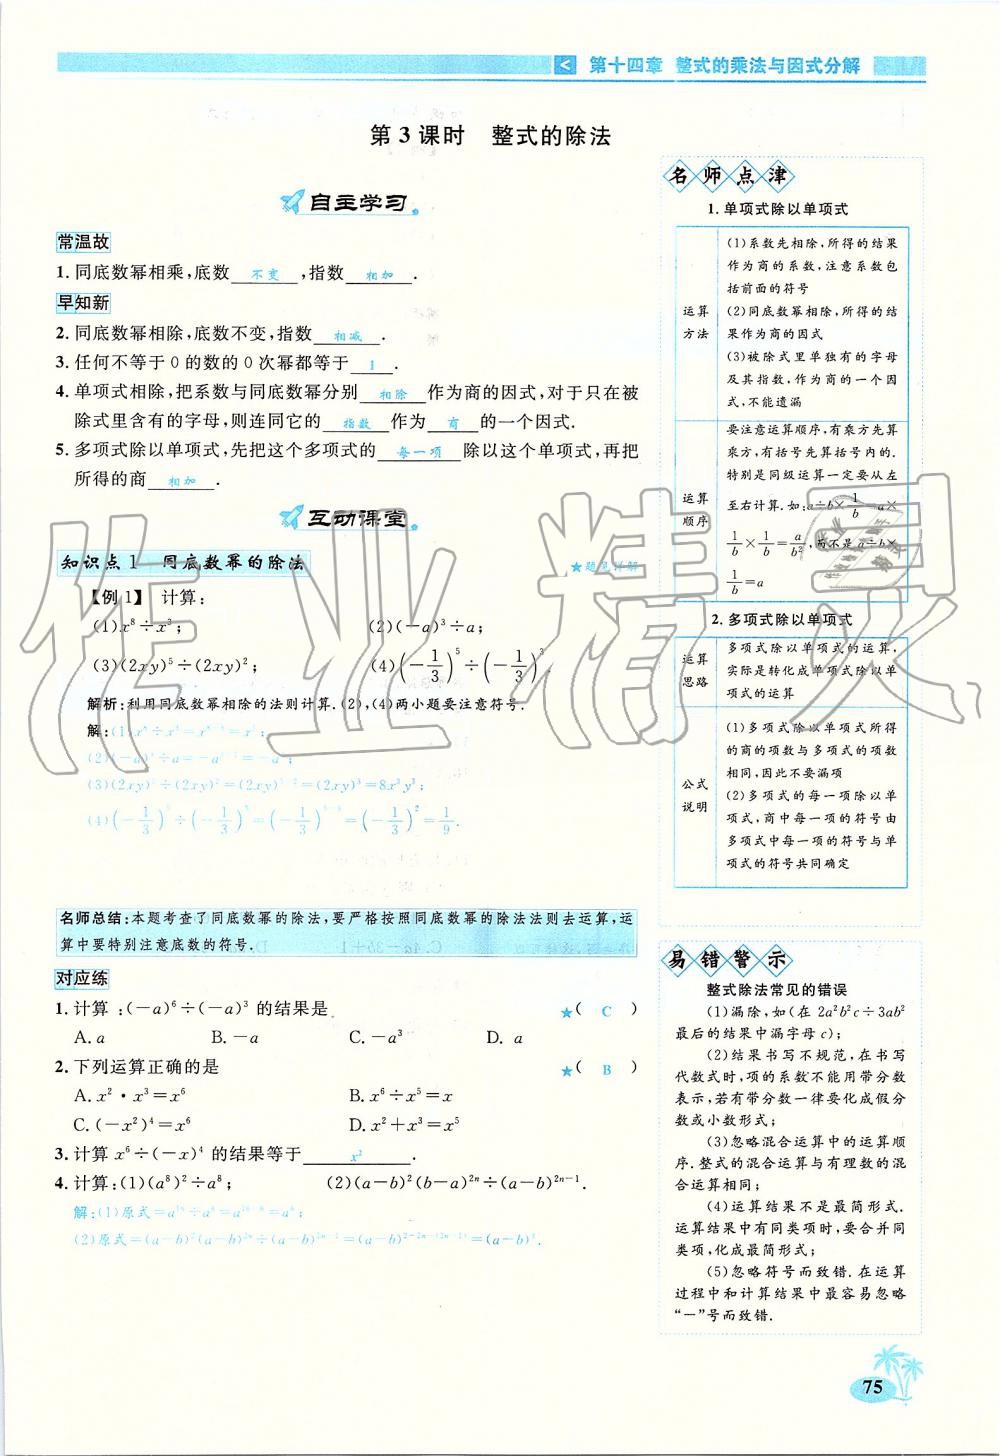 第十四章 整式的乘法与因式分解
第3课时 整式的除法
自主学习
常温故
1.同底数幂相乘,底数 不变 ,指数 相加 .
早知新
2.同底数幂相除,底数不变,指数 相减 .
3.任何不等于0的数的0次幂都等于 1 .
4.单项式相除,把系数与同底数幂分别 相除 作为商的因式,对于只在被
除式里含有的字母,则连同它的 指数 作为 商 的一个因式.
5.多项式除以单项式,先把这个多项式的 每一项 除以这个单项式,再把
所得的商 相加 .
互动课堂
知识点1 同底数幂的除法
★题见详解
【例1】 计算:
(1)x⁸÷x³; (2)(-a)³÷a;
(3)(2xy)⁵÷(2xy)²; (4)(-1/3)⁵÷(-1/3)³
解析:利用同底数幂相除的法则计算.(2),(4)两小题要注意符号.
解:(1)x⁸÷x³=x⁸⁻³=x⁵;
(2)(-a)³÷a=-a³⁻¹=-a²;
(3)(2xy)⁵÷(2xy)²=(2xy)⁵⁻²=(2xy)³=8x³y³;
(4)(-1/3)⁵÷(-1/3)³=(-1/3)⁵⁻³=(-1/3)²=1/9.
名师总结:本题考查了同底数幂的除法,要严格按照同底数幂的除法法则去运算,运
算中要特别注意底数的符号.
对应练
1.计算:(-a)⁶÷(-a)³ 的结果是 ★( C )
A.a B.-a C.-a³ D. a
2.下列运算正确的是 ★( B )
A.x²·x³=x⁶ B.x⁶÷x⁵=x
C.(-x²)⁴=x⁶ D.x²+x³=x⁵
3.计算 x⁶÷(-x)⁴ 的结果等于 x² .
4.计算:(1)(a⁸)²÷a⁸; (2)(a-b)²(b-a)²ⁿ÷(a-b)²ⁿ⁻¹.
解:(1)原式=a¹⁶÷a⁸=a¹⁶⁻⁸=a⁸;
(2)原式=(a-b)²(a-b)²ⁿ÷(a-b)²ⁿ⁻¹=(a-b)²⁺²ⁿ⁻⁽²ⁿ⁻¹⁾=(a-b)³.
名师点津
1.单项式除以单项式
运算
方法
(1)系数先相除,所得的结果
作为商的系数,注意系数包
括前面的符号
(2)同底数幂相除,所得的结
果作为商的因式
(3)被除式里单独有的字母
及其指数,作为商的一个因
式,不能遗漏
运算
顺序
要注意运算顺序,有乘方先算
乘方,有括号先算括号内的.
特别是同级运算一定要从左
至右计算.如:a÷b×1/b=a×
1/b×1/b=a/b²,而不是a÷b×
1/b=a
2.多项式除以单项式
运算
思路
多项式除以单项式的运算,
实际是转化成单项式除以单
项式的运算
公式
说明
(1)多项式除以单项式所得
的商的项数与多项式的项数
相同,因此不要漏项
(2)多项式的每一项除以单
项式,商中每一项的符号由
多项式中每一项的符号与单
项式的符号共同确定
易错警示
整式除法常见的错误
(1)漏除,如(在 2a²b²c÷3ab²
最后的结果中漏字母c);
(2)结果书写不规范,在书写
代数式时,项的系数不能用带分数
表示,若有带分数一律要化成假分
数或小数形式;
(3)忽略混合运算中的运算顺
序.整式的混合运算与有理数的混
合运算相同;
(4)运算结果不是最简形式.
运算结果中有同类项时,要合并同
类项,化成最简形式;
(5)忽略符号而致错.在运算
过程中和计算结果中最容易忽略
“-”号而致错.
75
作业精灵